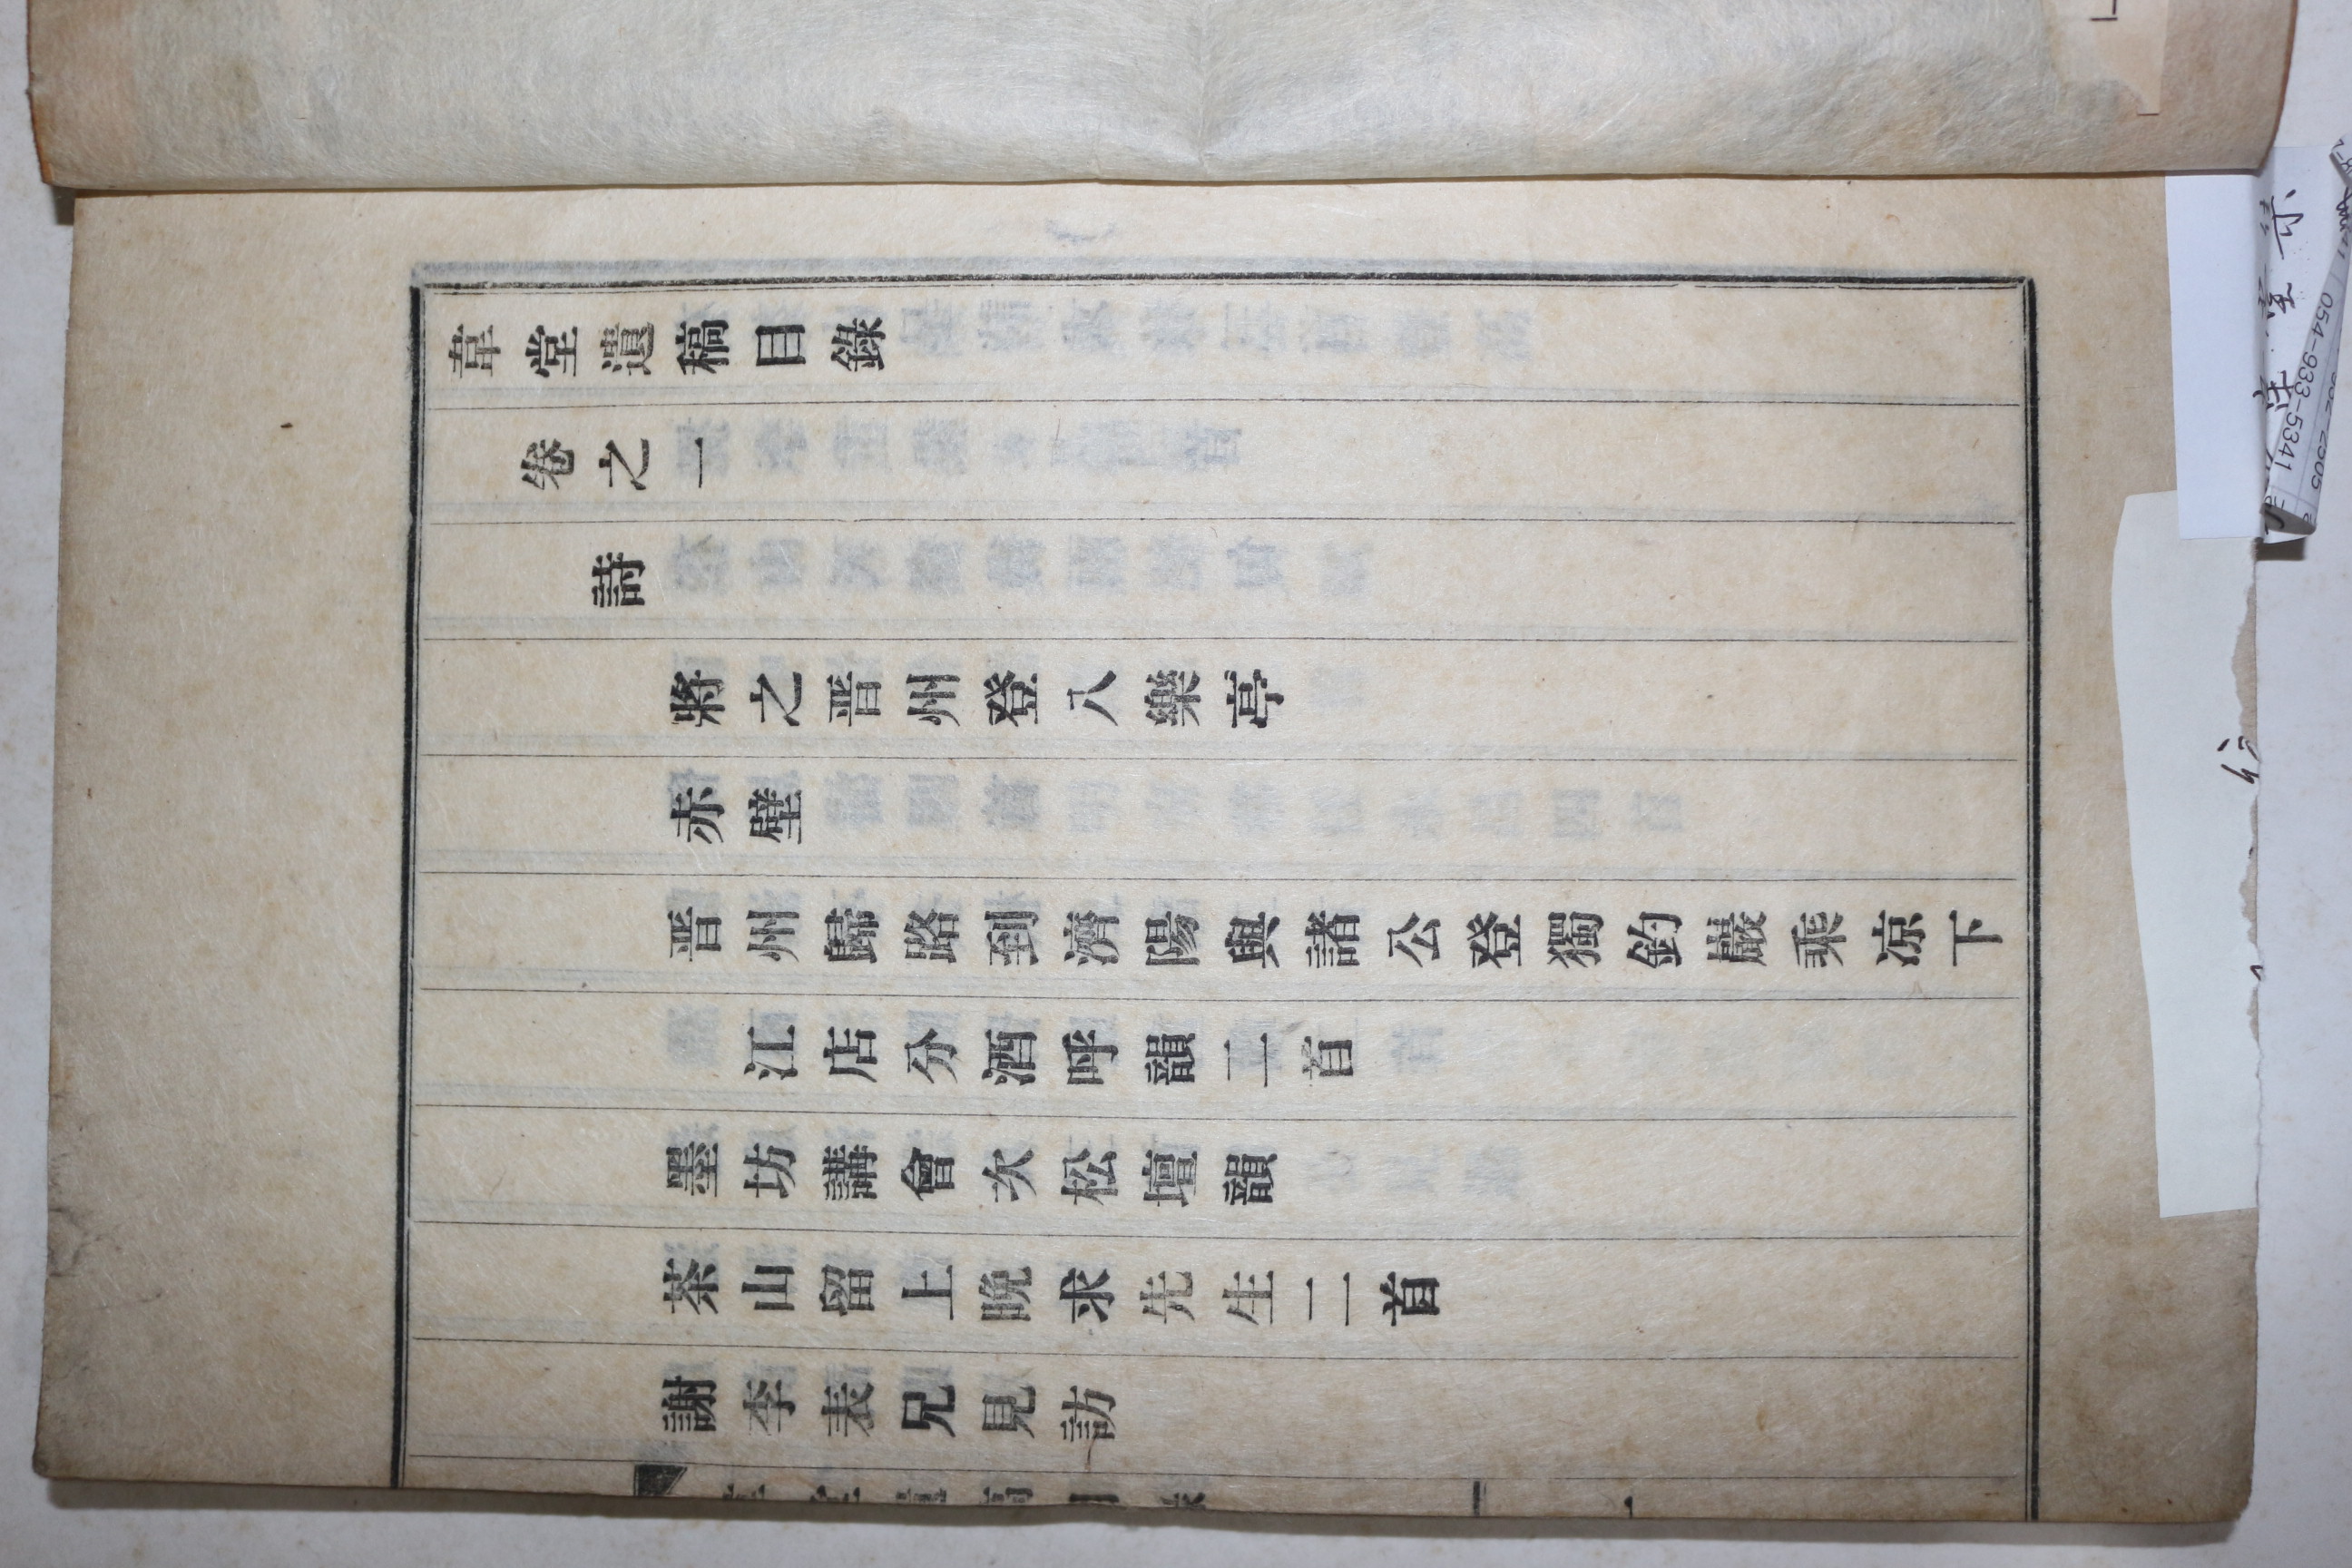 韋堂遺稿目錄
卷之一
詩
將之晋州登八樂亭
赤壁
晋州歸路到濟陽與諸公登獨釣巖乘凉下
江店分酒呼韻二首
墨坊講會次松壇韻
茶山留上晩求先生二首
謝李表兄見訪
054-933-5341